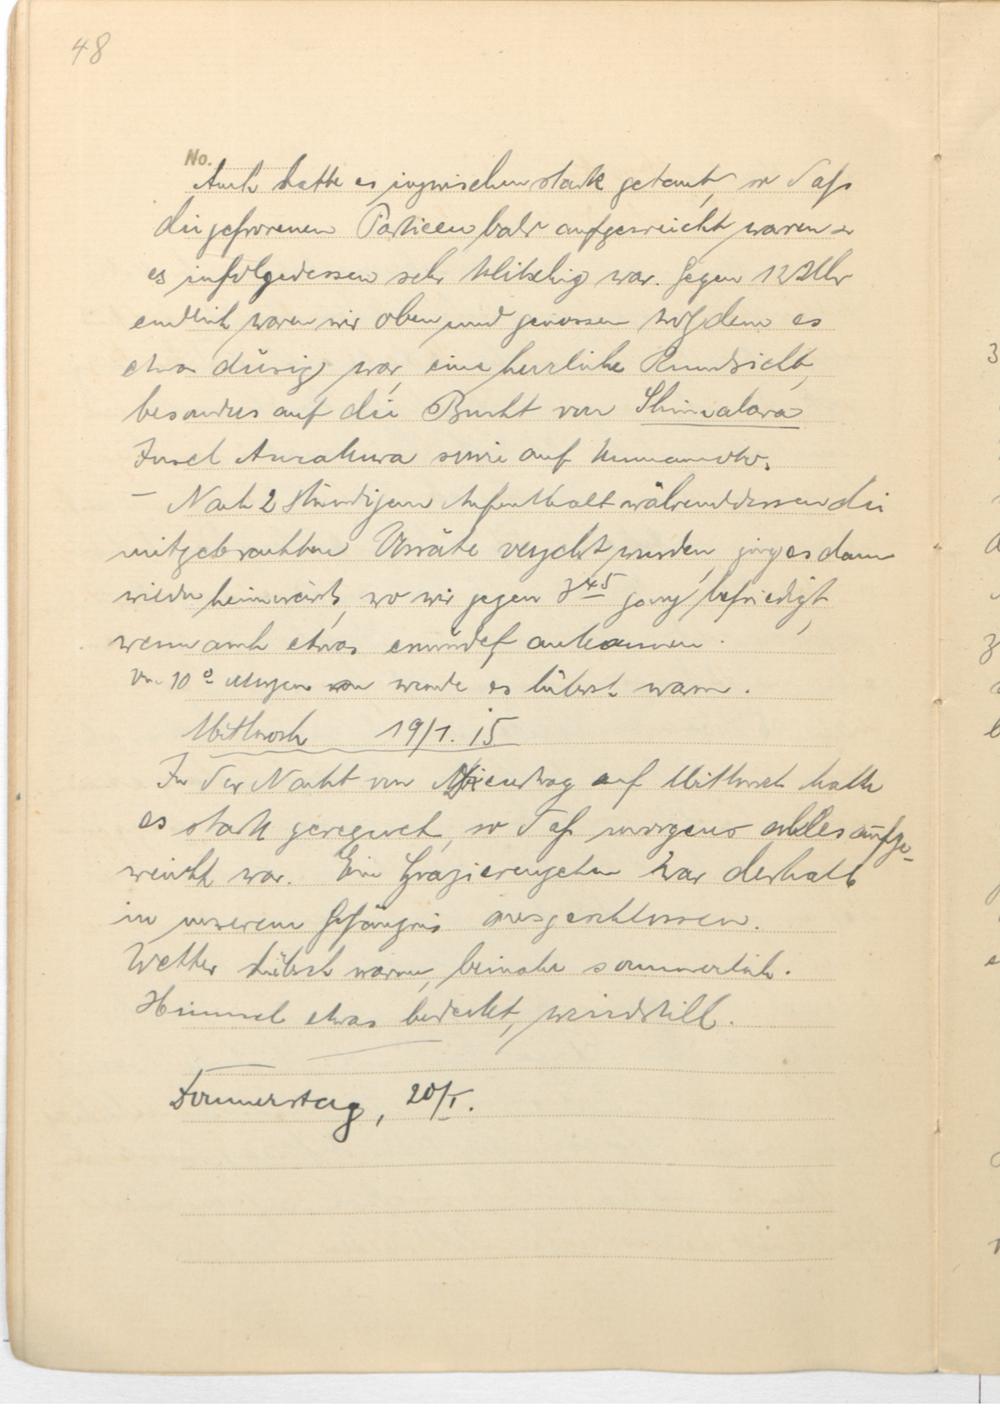 48
No.
Auch hatte es inzwischen stark getaut, so daß
die gefrorenen Partieen bald aufgeweicht waren u
es infolgedessen sehr klitschig war. Gegen 12 Uhr
endlich waren wir oben und genossen trotzdem es
etwas diesig war, eine herrliche Rundsicht,
besonders auf die Bucht von Shimabara
Insel Amakusa sowie auf Kumamoto.
– Nach 2 stündigem Aufenthalt währenddessen die
mitgebrachten Vorräte verzehrt wurden, ging es dann
wieder heimwärts, wo wir gegen 3 45 ganz befriedigt,
wenn auch etwas ermüdet ankamen.
Von 10 o Morgens wurde es hübsch warm.
Mittwoch 19/1. 15
In der Nacht von Dienstag auf Mittwoch hatte
es stark geregnet, so daß morgens alles aufge-
weicht war. Ein Grazierengehen war deshalb
in unserem Gefängnis ausgeschlossen.
Wetter hübsch warm, beinahe sommerlich.
Himmel etwas bedeckt, windstill.
Donnerstag, 20/I.